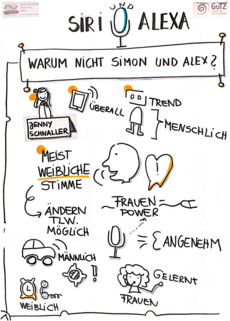 SIRI ALEXA
GUTZ
WARUM NICHT SIMON UND ALEX?
JENNY
SCHNALLER
ÜBERALL
TREND
MENSCHLICH
MEIST
WEIBLICHE
STIMME
ÄNDERN
TLW.
MÖGLICH
FRAUEN
POWER
ANGENEHM
MÄNNLICH
WEIBLICH
GELERNT
FRAUEN